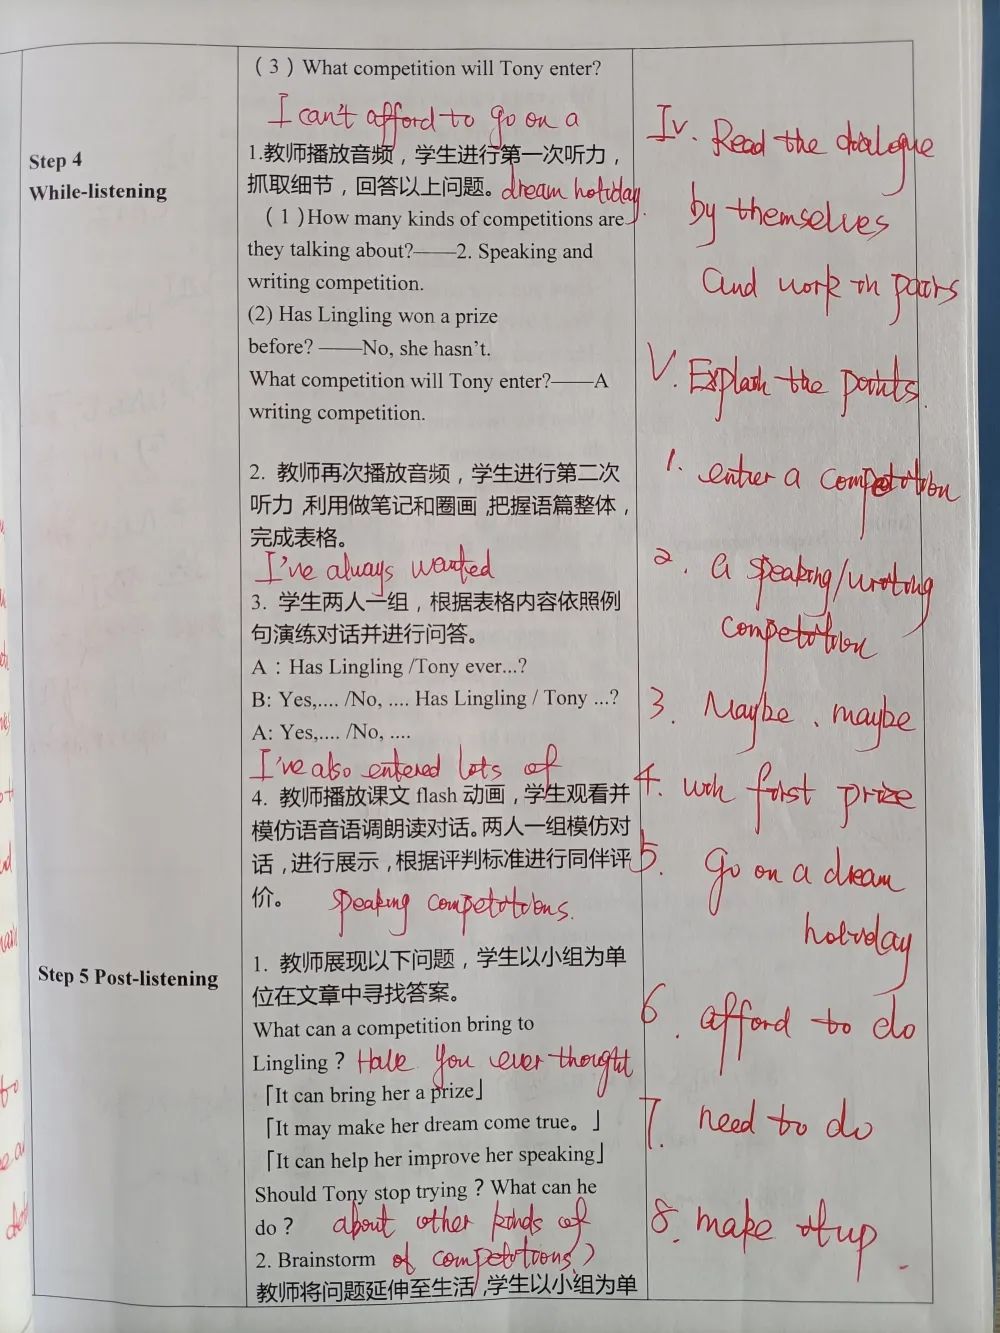 (3) What competition will Tony enter?
I can't afford to go on a
Step 4
While-listening
1.教师播放音频，学生进行第一次听力，
抓取细节，回答以上问题。 dream holiday.
(1)How many kinds of competitions are
they talking about?——2. Speaking and
writing competition.
(2) Has Lingling won a prize
before? ——No, she hasn't.
What competition will Tony enter?——A
writing competition.
2. 教师再次播放音频，学生进行第二次
听力,利用做笔记和圈画,把握语篇整体，
完成表格。
I've always wanted
3. 学生两人一组，根据表格内容依照例
句演练对话并进行问答。
A：Has Lingling /Tony ever...?
B: Yes,.... /No, .... Has Lingling / Tony ...?
A: Yes,.... /No, ....
I've also entered lots of
4. 教师播放课文 flash 动画，学生观看并
模仿语音语调朗读对话。两人一组模仿对
话，进行展示，根据评判标准进行同伴评
价。 speaking competitions.
Step 5 Post-listening
1. 教师展现以下问题，学生以小组为单
位在文章中寻找答案。
What can a competition bring to
Lingling？ Have you ever thought
「It can bring her a prize」
「It may make her dream come true。」
「It can help her improve her speaking」
Should Tony stop trying？What can he
do？ about other kinds of
2. Brainstorm of competitions)
教师将问题延伸至生活,学生以小组为单
IV. Read the dialogue
by themselves
and work in pairs
V. Explain the points.
1. enter a competition
2. a speaking/writing
competition
3. Maybe、maybe
4. win first prize
5. go on a dream
holiday
6. afford to do
7. need to do
8. make it up